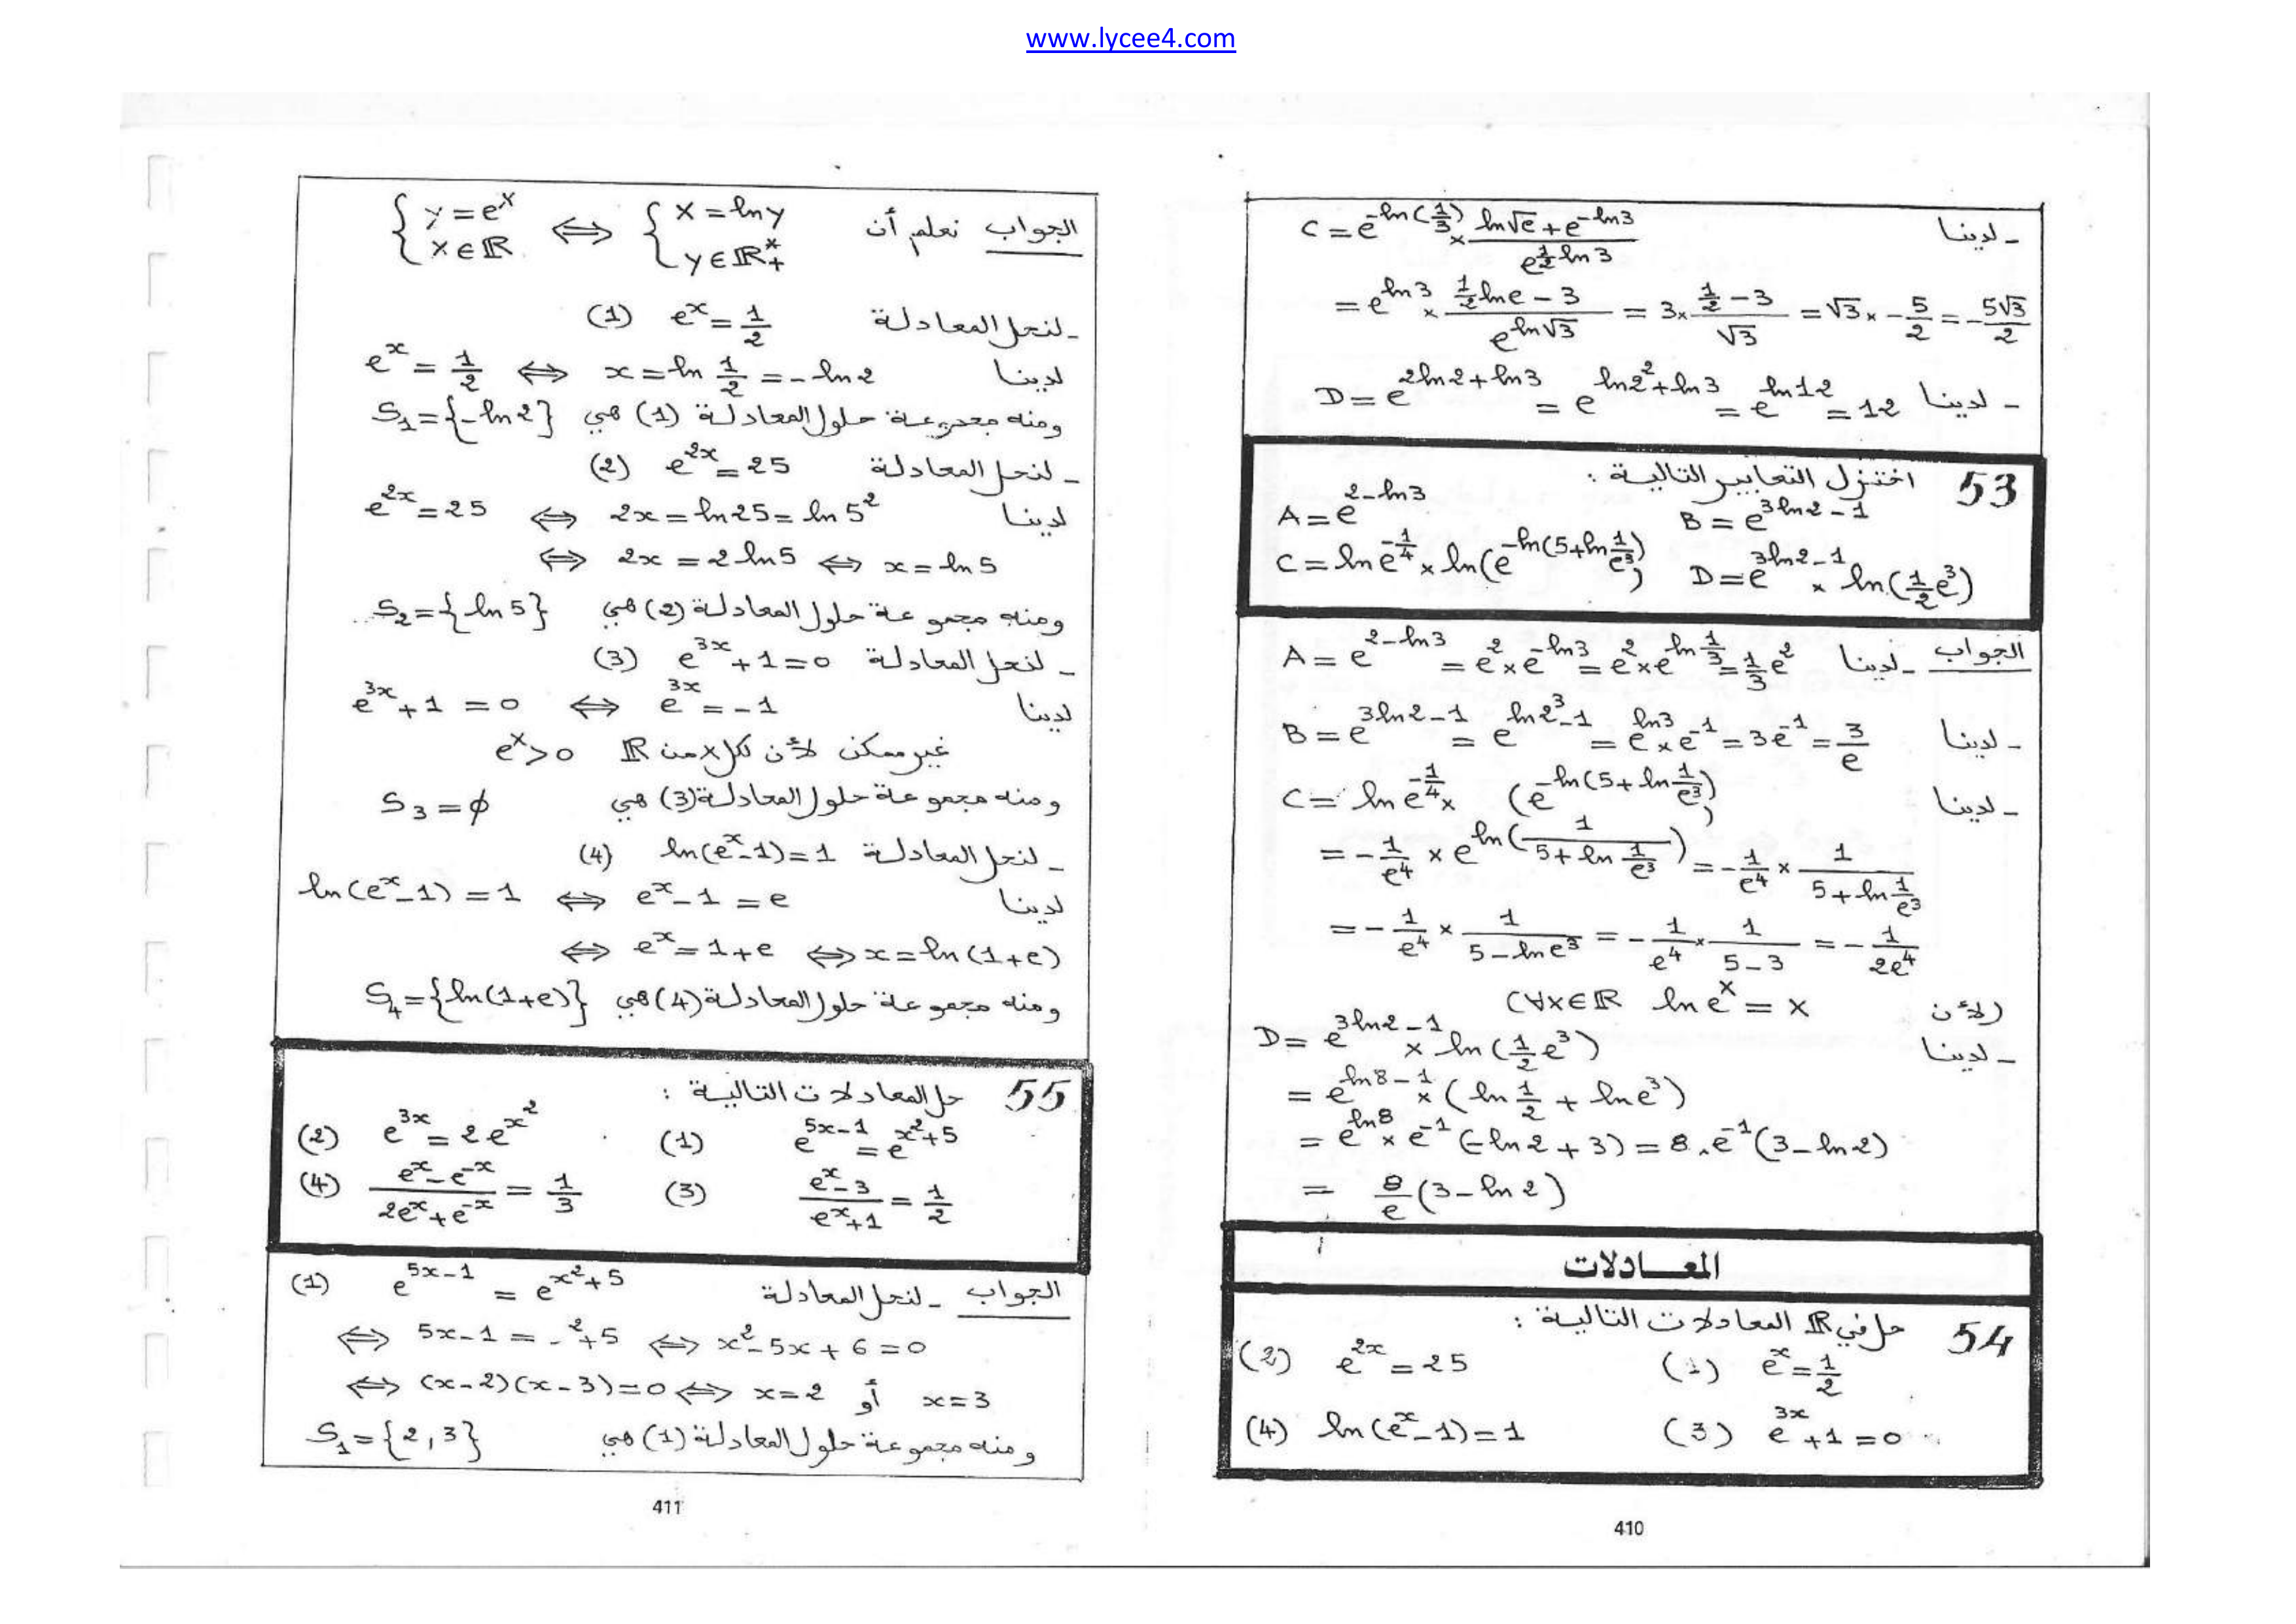 www.lycee4.com
- لدينا C = e^{-ln(1/3)} × (ln√e + e^{-ln3}) / e^{1/2 ln3}
= e^{ln3} × (1/2 lne - 3) / e^{ln√3} = 3 × (1/2 - 3) / √3 = √3 × - 5/2 = - 5√3/2
- لدينا D = e^{2ln2+ln3} = e^{ln2²+ln3} = e^{ln12} = 12
53 اختزل التعابير التالية :
A = e^{2-ln3} B = e^{3ln2-1}
C = ln e^{-1/4} × ln(e^{-ln(5+ln 1/e³)}) D = e^{3ln2-1} × ln(1/2 e³)
الجواب - لدينا A = e^{2-ln3} = e² × e^{-ln3} = e² × e^{ln 1/3} = 1/3 e²
- لدينا B = e^{3ln2-1} = e^{ln2³-1} = e^{ln3} × e^{-1} = 3e^{-1} = 3/e
- لدينا C = ln e^{-1/4} × (e^{-ln(5+ln 1/e³)})
= - 1/e⁴ × e^{ln(1/(5+ln 1/e³))} = - 1/e⁴ × 1/(5+ln 1/e³)
= - 1/e⁴ × 1/(5-lne³) = - 1/e⁴ × 1/(5-3) = - 1/2e⁴
(لأن (∀x∈ℝ ln e^x = x
- لدينا D = e^{3ln2-1} × ln(1/2 e³)
= e^{ln8-1} × (ln 1/2 + lne³)
= e^{ln8} × e^{-1} (-ln2 + 3) = 8.e^{-1}(3-ln2)
= 8/e (3-ln2)
المعـــادلات
54 حل في ℝ المعادلات التالية :
(1) e^x = 1/2 (2) e^{2x} = 25
(3) e^{3x} + 1 = 0 (4) ln(e^x-1) = 1
410
الجواب نعلم أن { y = e^x ⟺ { x = lny
{ x∈ℝ { y∈ℝ*₊
- لنحل المعادلة (1) e^x = 1/2
لدينا e^x = 1/2 ⟺ x = ln 1/2 = -ln2
ومنه مجموعة حلول المعادلة (1) هي S₁ = {-ln2}
- لنحل المعادلة (2) e^{2x} = 25
لدينا e^{2x} = 25 ⟺ 2x = ln25 = ln5²
⟺ 2x = 2ln5 ⟺ x = ln5
ومنه مجموعة حلول المعادلة (2) هي S₂ = {ln5}
- لنحل المعادلة (3) e^{3x} + 1 = 0
لدينا e^{3x} + 1 = 0 ⟺ e^{3x} = -1
غير ممكن لأن لكل x من ℝ e^x > 0
ومنه مجموعة حلول المعادلة (3) هي S₃ = ϕ
- لنحل المعادلة (4) ln(e^x-1) = 1
لدينا ln(e^x-1) = 1 ⟺ e^x-1 = e
⟺ e^x = 1+e ⟺ x = ln(1+e)
ومنه مجموعة حلول المعادلة (4) هي S₄ = {ln(1+e)}
55 حل المعادلات التالية :
(1) e^{5x-1} = e^{x²+5} (2) e^{3x} = 2e^{x²}
(3) (e^x-3)/(e^x+1) = 1/2 (4) (e^x-e^{-x})/(2e^x+e^{-x}) = 1/3
الجواب - لنحل المعادلة (1) e^{5x-1} = e^{x²+5}
⟺ 5x-1 = ²+5 ⟺ x²-5x+6 = 0
⟺ (x-2)(x-3) = 0 ⟺ x = 2 أو x = 3
ومنه مجموعة حلول المعادلة (1) هي S₁ = {2,3}
411